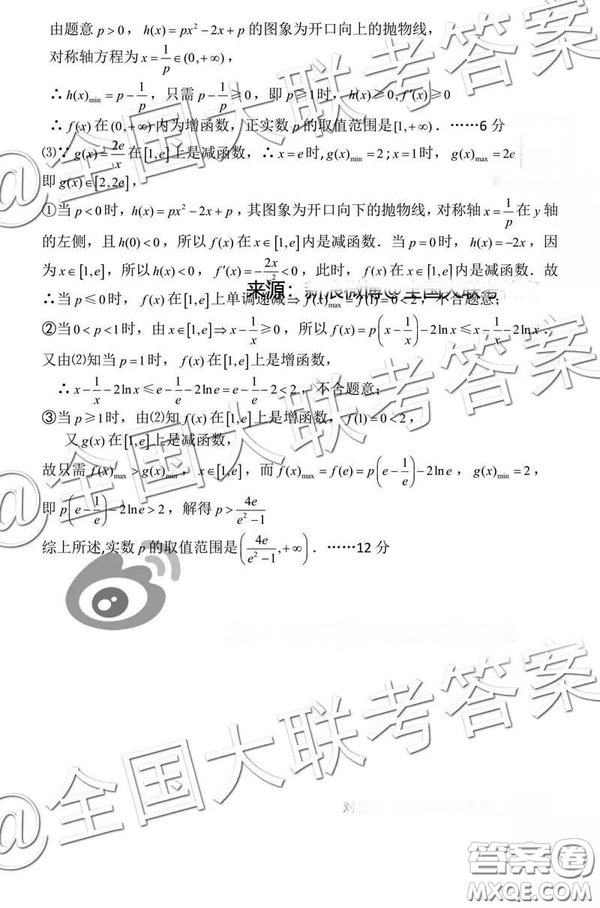 由题意 p>0，h(x)=px²-2x+p 的图象为开口向上的抛物线，
对称轴方程为 x=1/p∈(0,+∞)，
∴h(x)min=p-1/p，只需 p-1/p≥0，即 p≥1时，h(x)≥0,f′(x)≥0
∴f(x)在(0,+∞)内为增函数，正实数 p 的取值范围是[1,+∞)．……6 分
⑶∵g(x)=2e/x 在[1,e]上是减函数，∴x=e时,g(x)min=2；x=1时，g(x)max=2e
即 g(x)∈[2,2e]，
①当 p<0时，h(x)=px²-2x+p，其图象为开口向下的抛物线，对称轴 x=1/p 在 y 轴
的左侧，且 h(0)<0，所以 f(x)在 x∈[1,e]内是减函数．当 p=0时，h(x)=-2x，因
为 x∈[1,e]，所以 h(x)<0，f′(x)=-2x/x²<0，此时，f(x)在 x∈[1,e]内是减函数．故
∴当 p≤0时，f(x)在[1,e]上单调递减⇒f(x)max=f(1)=0<2，不合题意；
来源：
②当 0<p<1时，由 x∈[1,e]⇒x-1/x≥0，所以 f(x)=p(x-1/x)-2ln x≤x-1/x-2ln x．
又由⑵知当 p=1时，f(x)在[1,e]上是增函数，
∴x-1/x-2ln x≤e-1/e-2ln e=e-1/e-2<2，不合题意；
③当 p≥1时，由⑵知 f(x)在[1,e]上是增函数，f(1)=0<2，
又 g(x)在[1,e]上是减函数，
故只需 f(x)max>g(x)min，x∈[1,e]，而 f(x)max=f(e)=p(e-1/e)-2ln e，g(x)min=2，
即 p(e-1/e)-2ln e>2，解得 p>4e/(e²-1)
综上所述,实数 p 的取值范围是(4e/(e²-1),+∞)．……12 分
@全国大联考答案
@全国大联考答案
@全国大联考答案
@全国大联考答案
答案卷
MXQE.COM